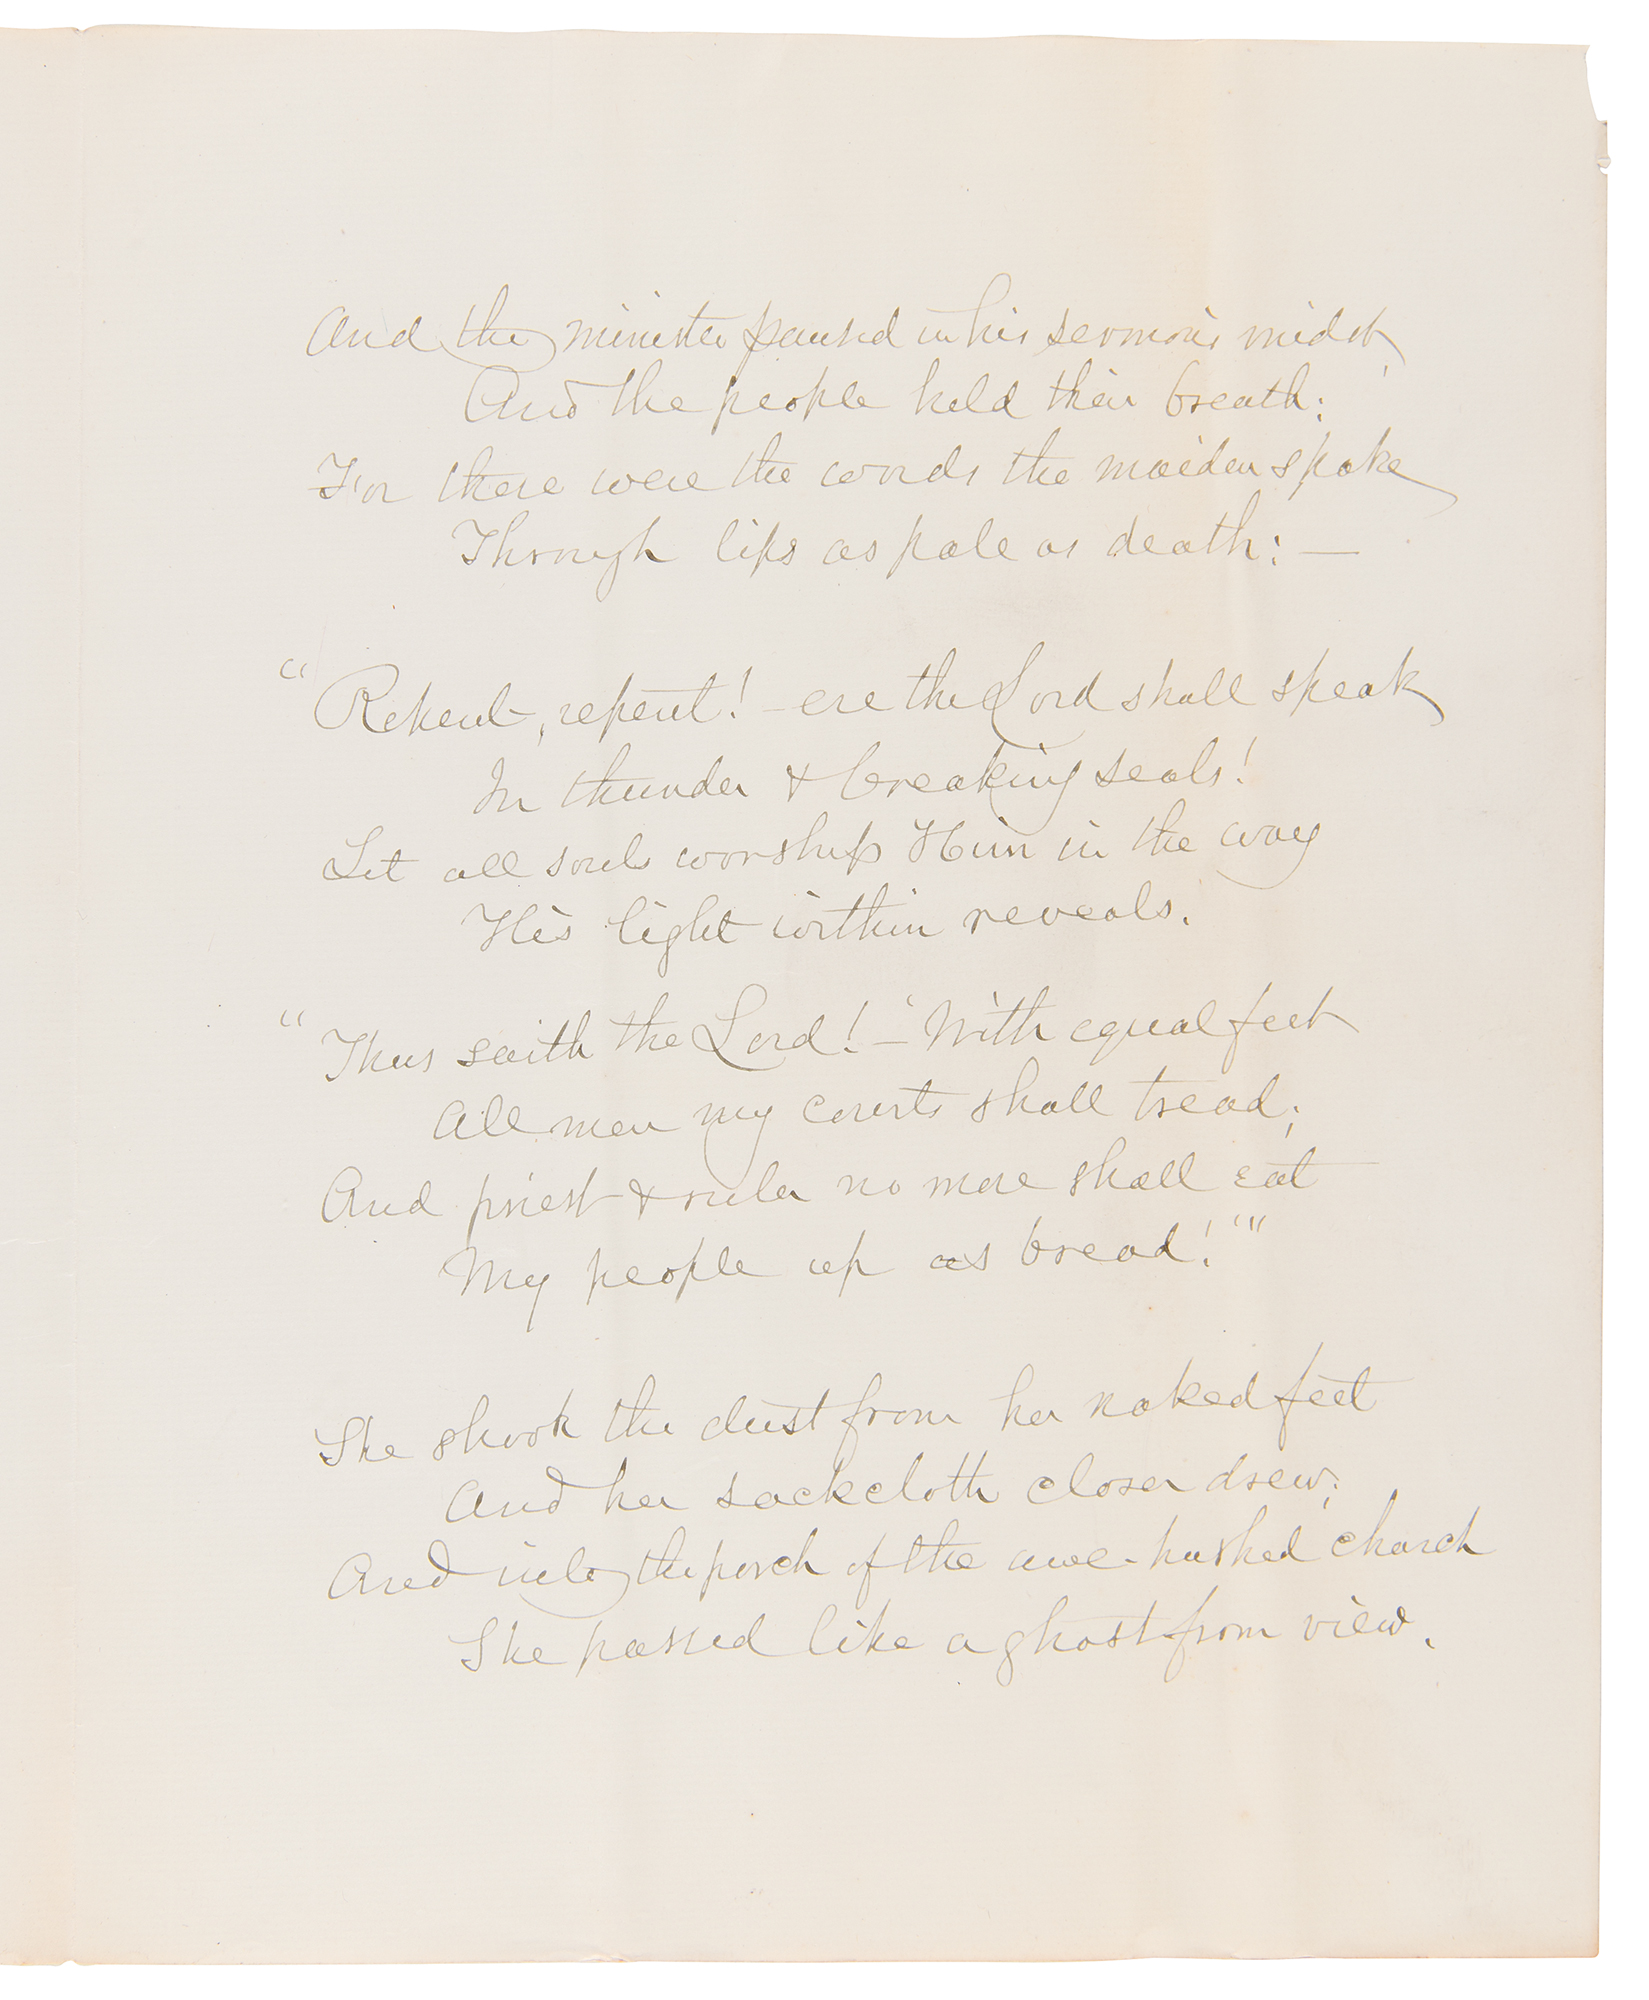 And the minister paused in his sermon's midst,
And the people held their breath;
For these were the words the maiden spoke
Through lips as pale as death: —
"Repent, repent! - ere the Lord shall speak
In thunder & breaking seals!
Let all souls worship Him in the way
His light within reveals.
"Thus saith the Lord! - 'With equal feet
All men my courts shall tread;
And priest & ruler no more shall eat
My people up as bread!'"
She shook the dust from her naked feet
And her sackcloth closer drew;
And into the porch of the awe-hushed church
She passed like a ghost from view.